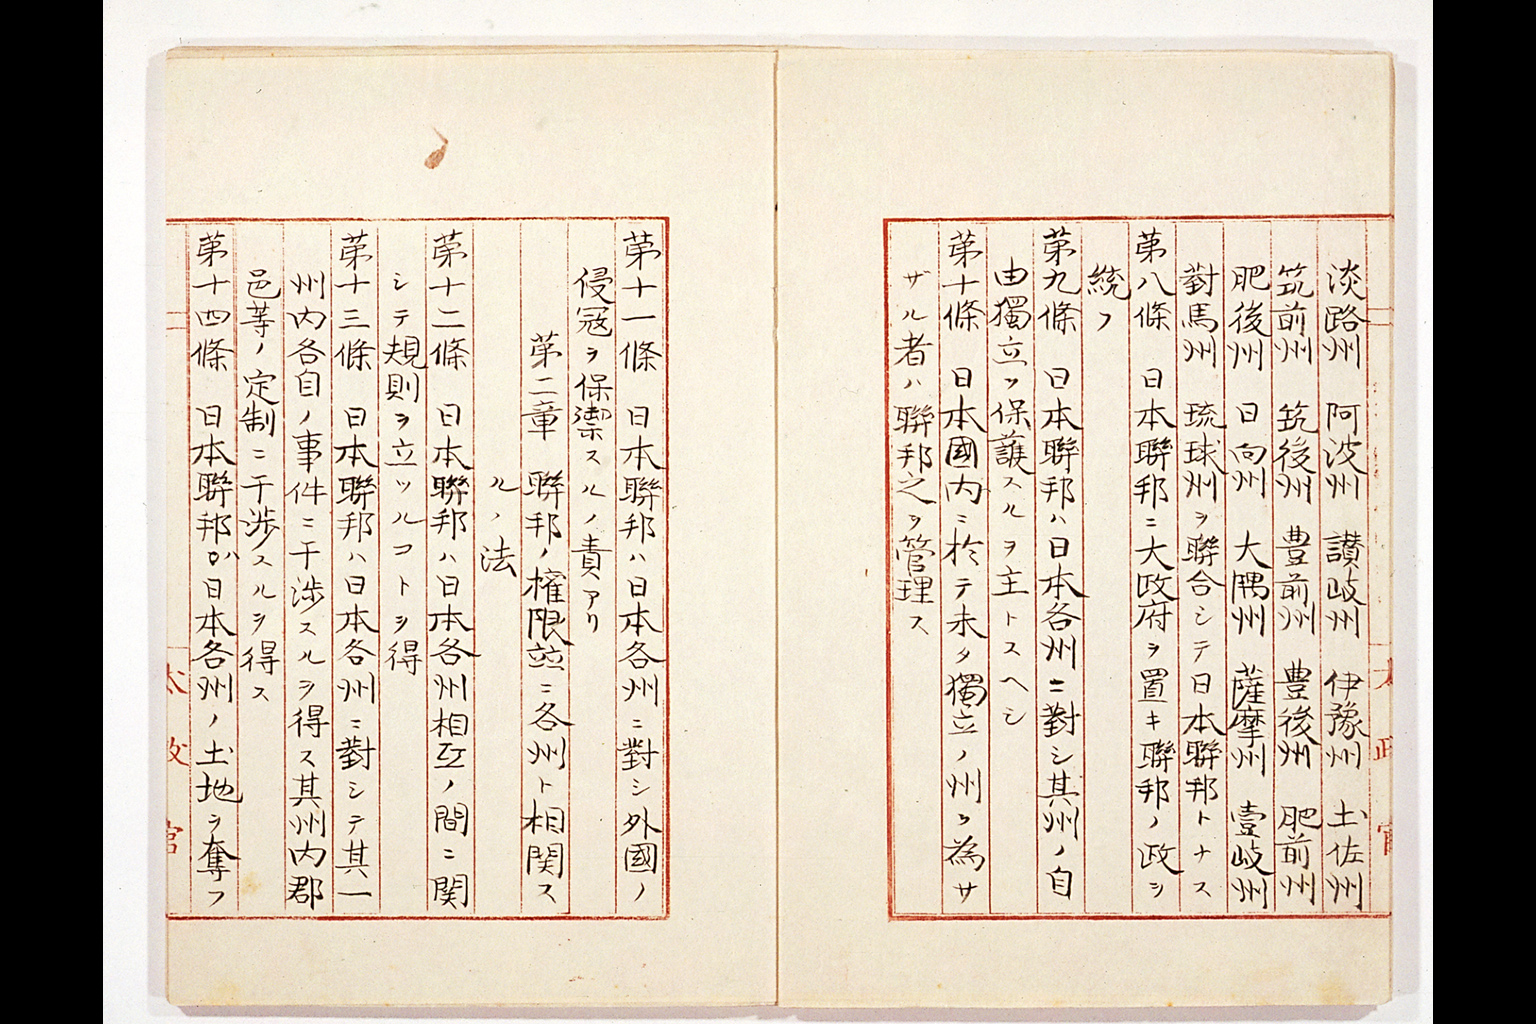 淡路州 阿波州 讃岐州 伊豫州 土佐州
筑前州 筑後州 豊前州 豊後州 肥前州
肥後州 日向州 大隅州 薩摩州 壹岐州
對馬州 琉球州ヲ聯合シテ日本聯邦トナス
第八條 日本聯邦ニ大政府ヲ置キ聯邦ノ政ヲ
統フ
第九條 日本聯邦ハ日本各州ニ對シ其州ノ自
由獨立ヲ保護スルヲ主トスヘシ
第十條 日本國内ニ於テ未タ獨立ノ州ヲ為サ
ザル者ハ聯邦之ヲ管理ス
太政官
第十一條 日本聯邦ハ日本各州ニ對シ外國ノ
侵冦ヲ保禦スルノ責アリ
第二章 聯邦ノ權限並ニ各州ト相関ス
ルノ法
第十二條 日本聯邦ハ日本各州相互ノ間ニ関
シテ規則ヲ立ツルコトヲ得
第十三條 日本聯邦ハ日本各州ニ對シテ其一
州内各自ノ事件ニ干渉スルヲ得ス其州内郡
邑等ノ定制ニ干渉スルヲ得ス
第十四條 日本聯邦ハ日本各州ノ土地ヲ奪フ
太政官